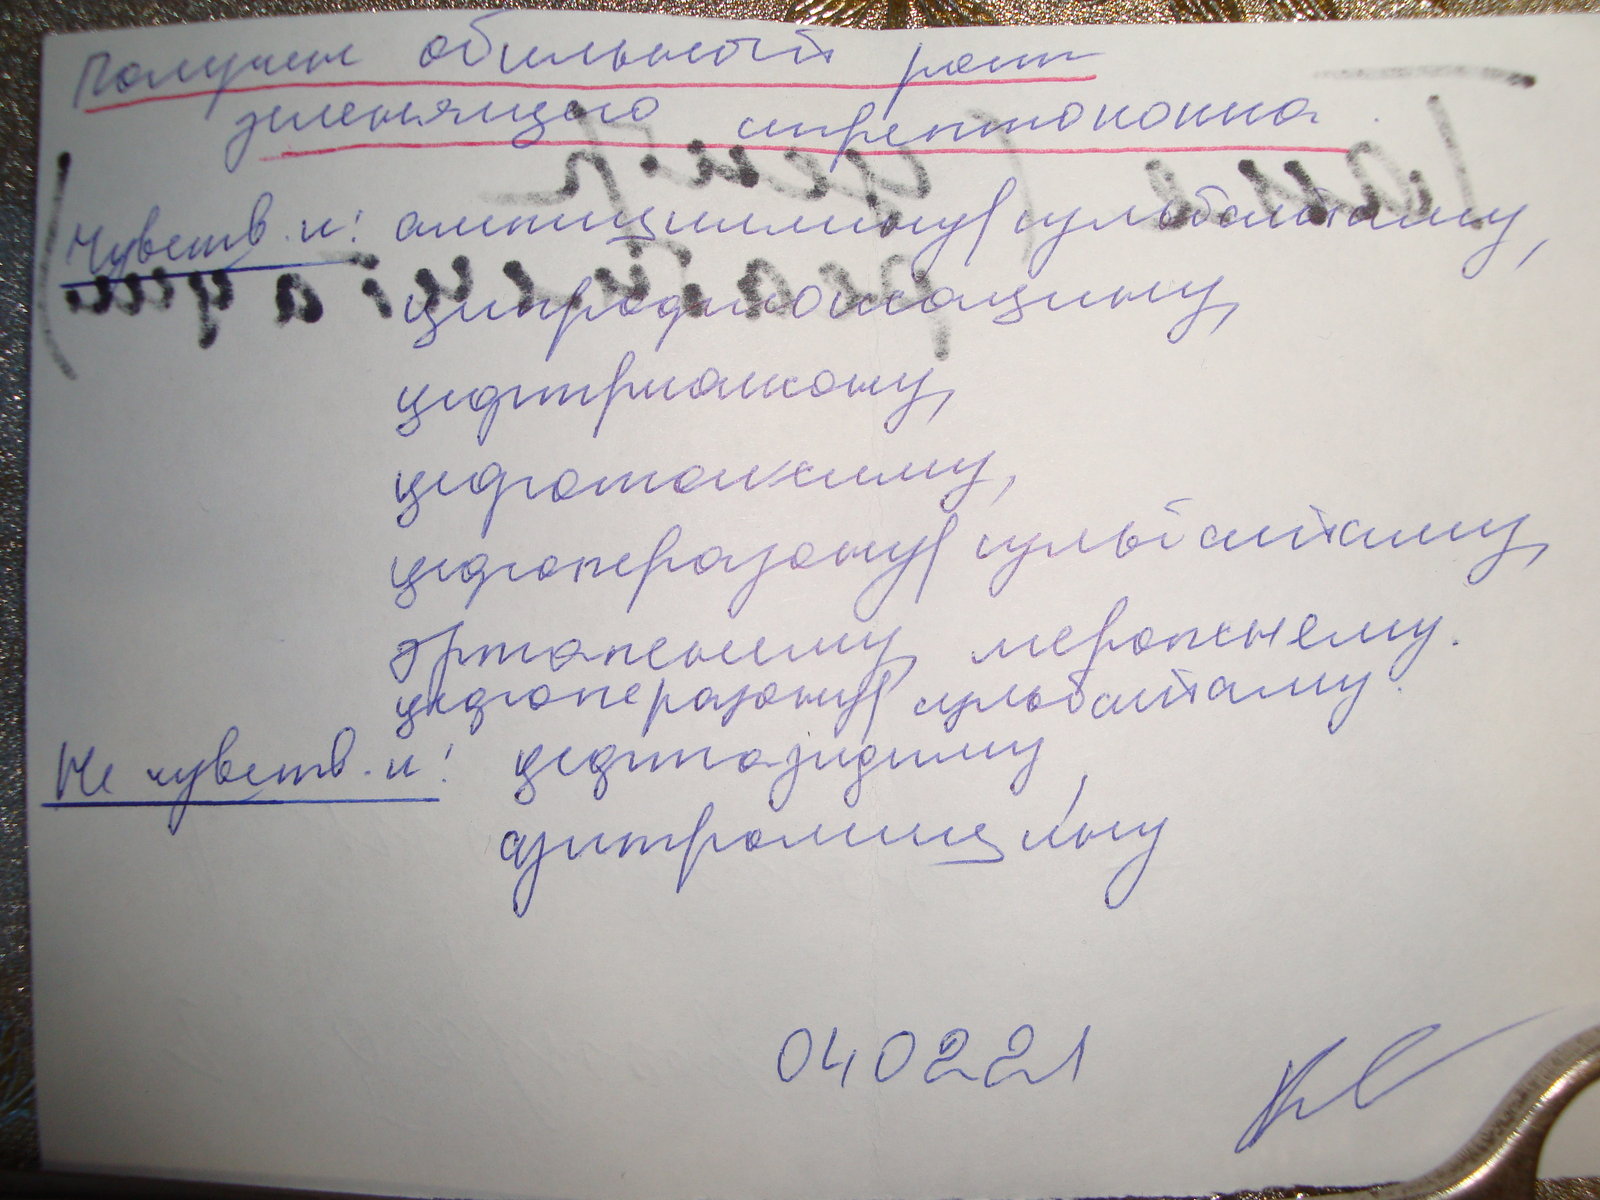 Получен обильный рост
зеленящего стрептококка.
Чувств. к: ампициллину/сульбактаму,
ципрофлоксацину,
цефтриаксону,
цефотаксиму,
цефоперазону/сульбактаму,
эртапенему, меропенему.
цефоперазону/сульбактаму.
Не чувств. к: цефтазидиму,
азитромицину
040221